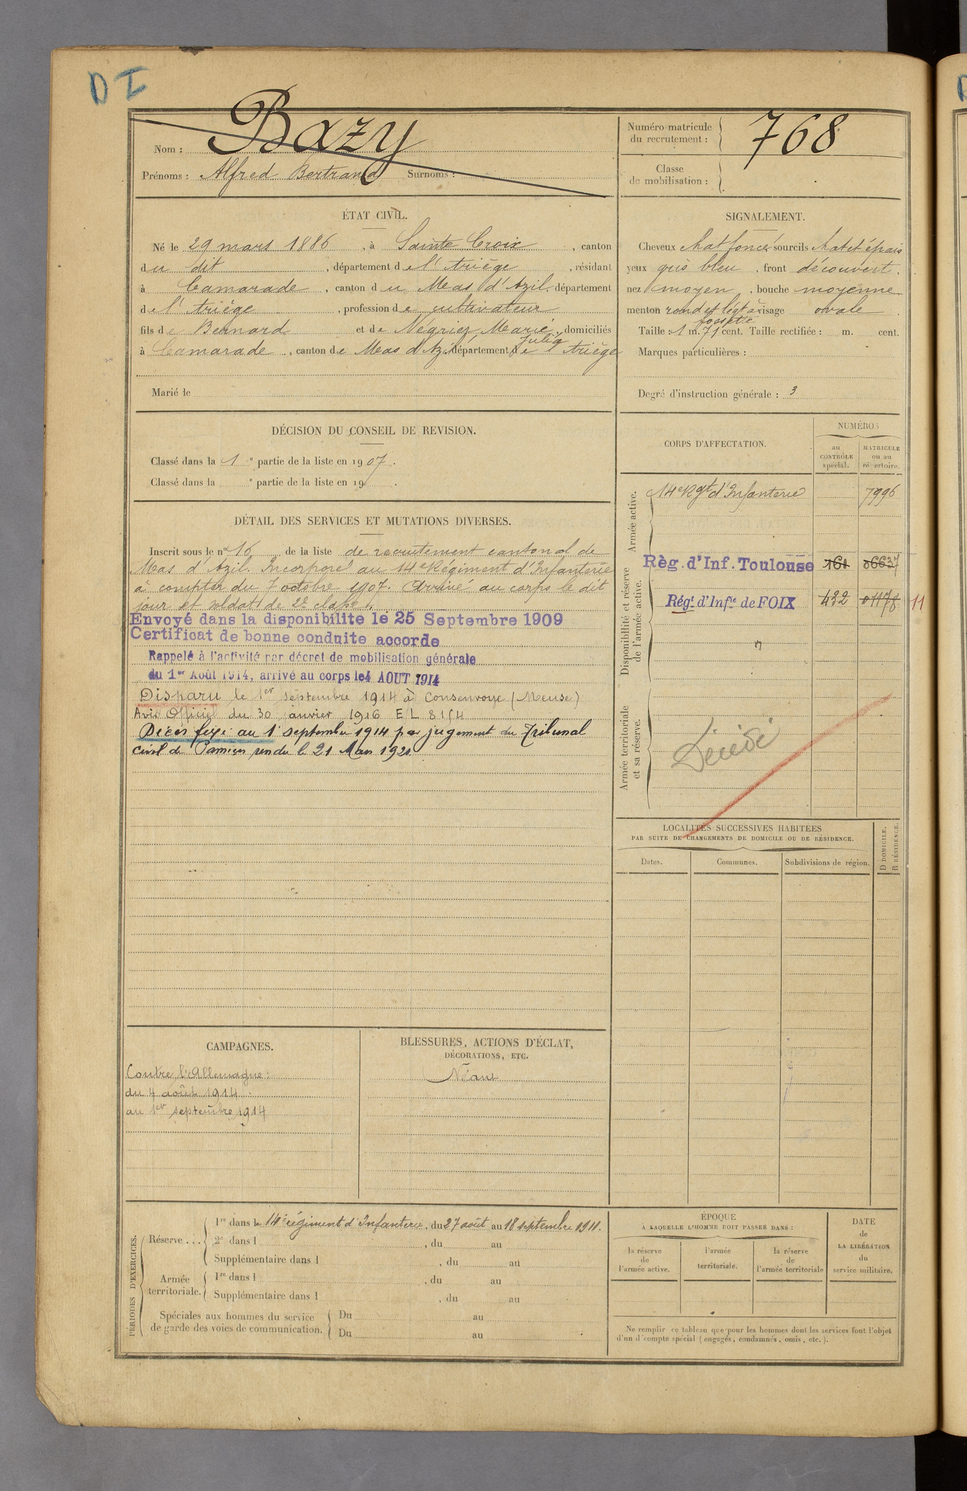 D I
Nom : Bazy
Prénoms : Alfred Bertrand Surnoms :
Numéro matricule
du recrutement : 768
Classe
de mobilisation :
ÉTAT CIVIL.
Né le 29 mars 1886, à Sainte Croix, canton
du dit, département de l'Ariège, résidant
à Camarade, canton du Mas d'Azil département
de l'Ariège, profession de cultivateur
fils de Bernard et de Négriez Marie Julie, domiciliés
à Camarade, canton de Mas d'Azil département de l'Ariège
Marié le
SIGNALEMENT.
Cheveux chat foncé sourcils chat et épais
yeux gris bleu, front découvert
nez moyen, bouche moyenne
menton rond et lég à fossette visage ovale
Taille : 1 m. 71 cent. Taille rectifiée : m. cent.
Marques particulières :
Degré d'instruction générale : 3
DÉCISION DU CONSEIL DE REVISION.
Classé dans la 1e partie de la liste en 1907.
Classé dans la e partie de la liste en 19
CORPS D'AFFECTATION.
NUMÉROS
au
CONTRÔLE
spécial.
MATRICULE
ou au
répertoire.
Armée active.
14e Rgt d'Infanterie 7996
Disponibilité et réserve
de l'armée active.
Règ. d'Inf. Toulouse 161
Régt d'Infie de FOIX 432 11
Armée territoriale
et sa réserve.
Décédé
DÉTAIL DES SERVICES ET MUTATIONS DIVERSES.
Inscrit sous le n° 16 de la liste de recrutement cantonal de
Mas d'Azil. Incorporé au 14e Régiment d'Infanterie
à compter du 7 octobre 1907. Arrivé au corps le dit
jour et soldat de 2e classe.
Envoyé dans la disponibilite le 25 Septembre 1909
Certificat de bonne conduite accorde
Rappelé à l'activité par décret de mobilisation générale
du 1er Août 1914, arrivé au corps le 4 AOUT 1914
Disparu le 1er septembre 1914 à Consenvoye (Meuse)
Avis Officiel du 30 janvier 1916 E L 8154
Décès fixé au 1 septembre 1914 par jugement du Tribunal
civil de Pamiers rendu le 21 Mars 1921.
LOCALITÉS SUCCESSIVES HABITÉES
PAR SUITE DE CHANGEMENTS DE DOMICILE OU DE RÉSIDENCE.
Dates. Communes. Subdivisions de région.
D DOMICILE.
R RÉSIDENCE.
CAMPAGNES.
Contre l'Allemagne :
du 4 août 1914
au 1er septembre 1914
BLESSURES, ACTIONS D'ÉCLAT,
DÉCORATIONS, ETC.
Néant
PÉRIODES D'EXERCICES.
Réserve ...
1re dans le 14e régiment d'Infanterie, du 27 août au 18 septembre 1911.
2e dans l , du au
Supplémentaire dans l , du au
Armée
territoriale.
1re dans l , du au
Supplémentaire dans l , du au
Spéciales aux hommes du service
de garde des voies de communication.
Du au
Du au
ÉPOQUE
À LAQUELLE L'HOMME DOIT PASSER DANS :
la réserve
de
l'armée active.
l'armée
territoriale.
la réserve
de
l'armée territoriale
DATE
de
LA LIBÉRATION
du
service militaire.
Ne remplir ce tableau que pour les hommes dont les services font l'objet
d'un décompte spécial (engagés, condamnés, omis, etc.).